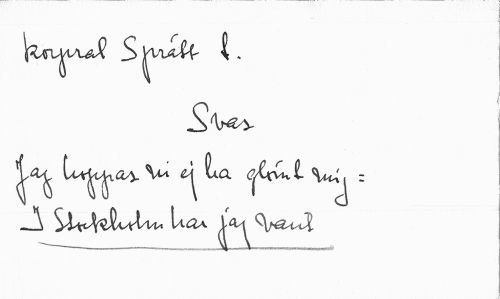 korpral Sprätt 1.
Svar
Jag hoppas ni ej ha glömt mig =
I Stockholm har jag vant